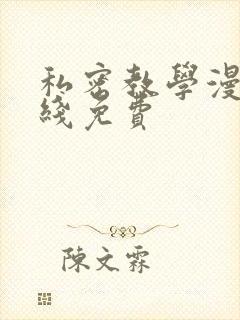 私密教學漫
綫免費
陳文霖